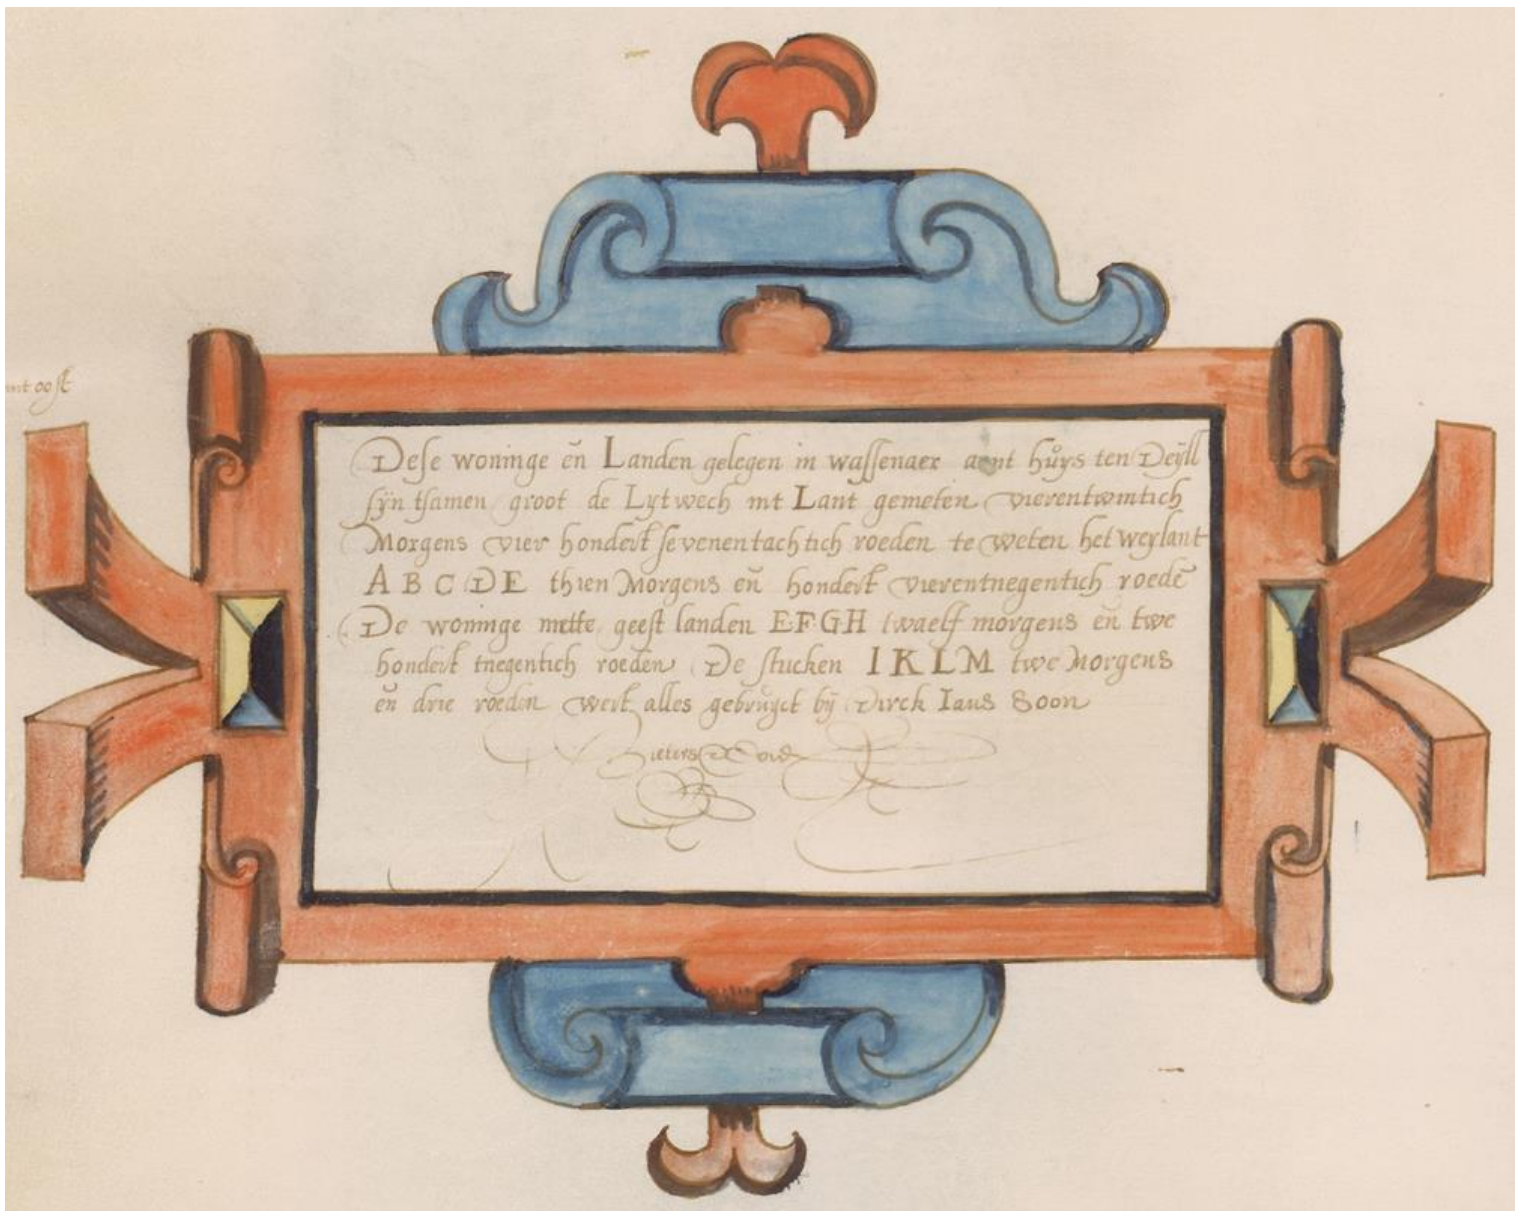 mt oost
Dese woninge en̄ Landen gelegen in wassenaer aent hůys ten Deÿll
sÿn tsamen groot de Lytwech mt Lant gemeten vierentwintich
Morgens vier hondert sevenentachtich roeden te weten het weylant
A B C D E thien Morgens en̄ hondert vierentnegentich roedē
De woninge mette geest landen E F G H twaelf morgens en̄ twe
hondert tnegentich roeden De stucken I K L M twe Morgens
en̄ drie roeden wert alles gebrůyct bÿ Dirck Ians Soon